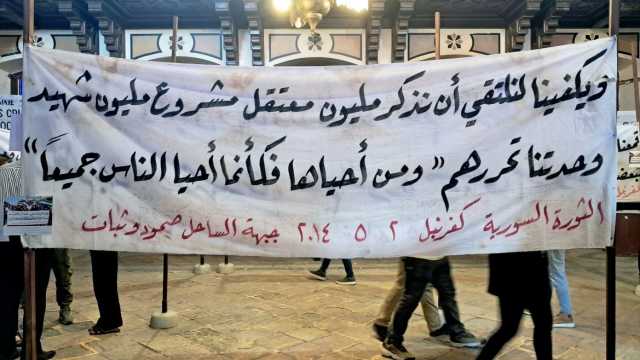 ويكفينا لنلتقي أن نذكر مليون معتقل مشروع مليون شهيد
وحدتنا تحررهم "ومن أحياها فكأنما أحيا الناس جميعاً"
الثورة السورية كفرنبل ٢ ٥ ٢٠١٤ جبهة الساحل صمود وثبات